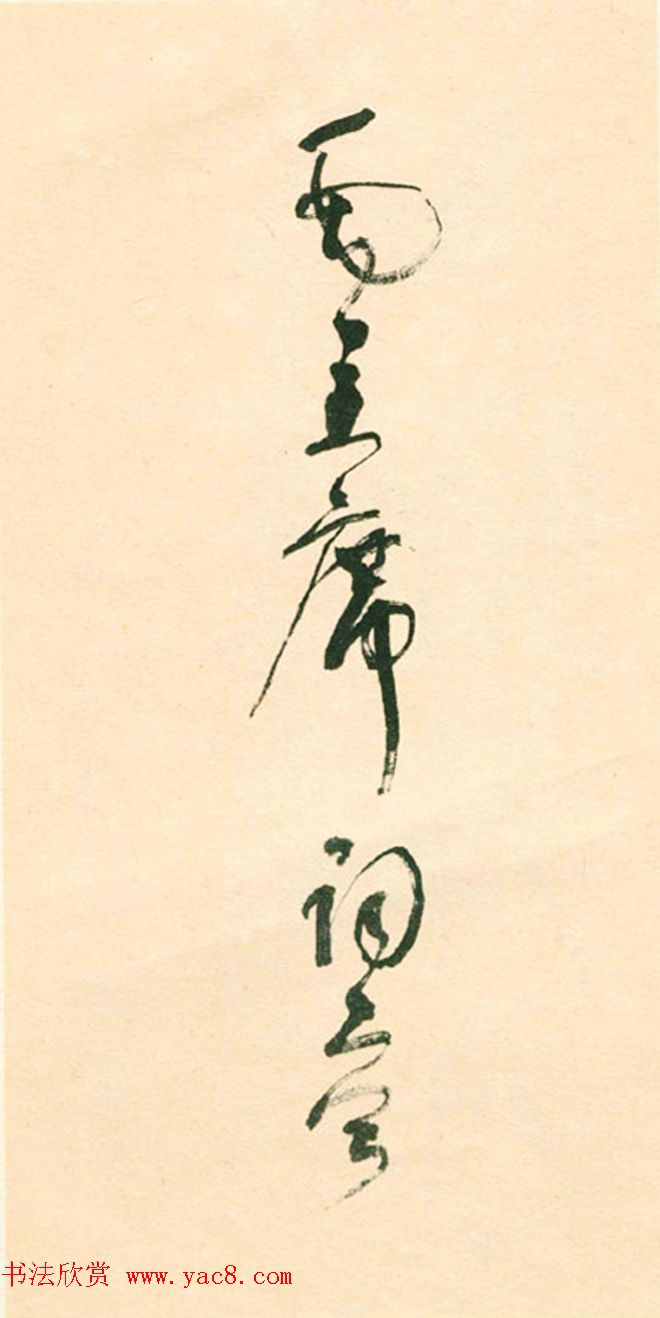 毛主席词
书法欣赏 www.yac8.com